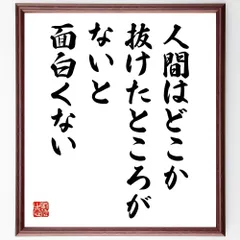 人間はどこか
抜けたところが
ないと
面白くない